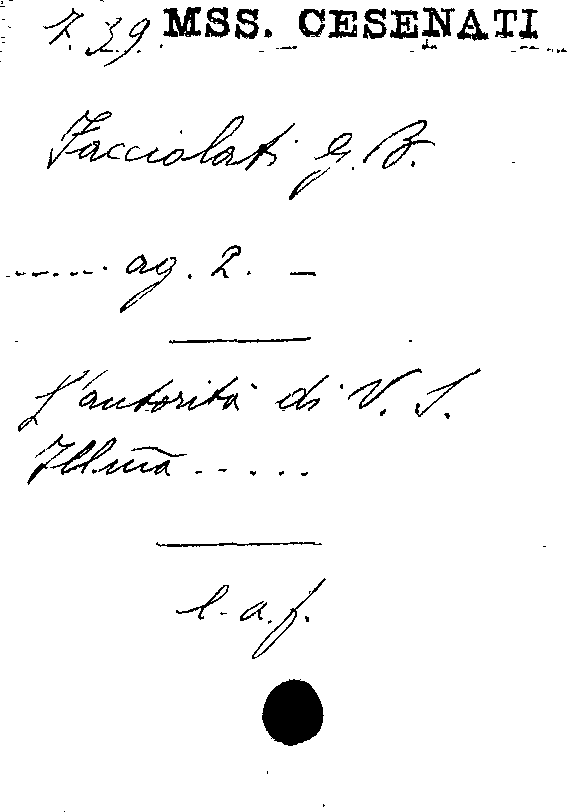 7.39. MSS. CESENATI
Facciolati G. B.
...... ag. 2. —
L'autorità di V. S.
Illm̃a .....
l. a. f.